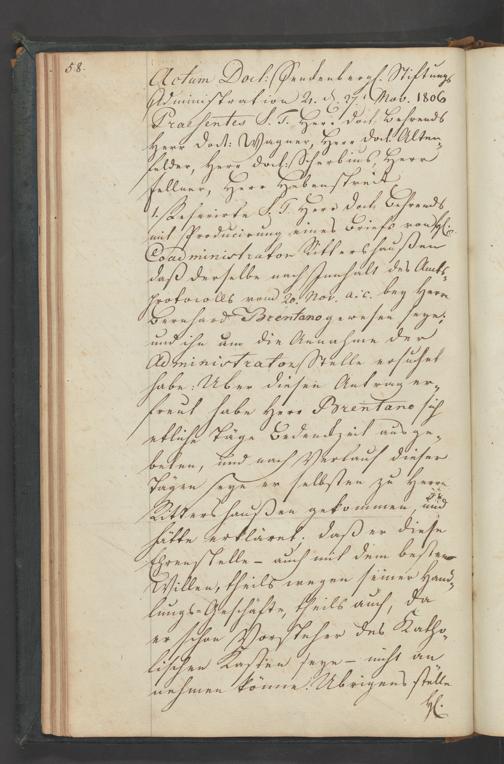 58.
Actum Doct: Senckenberg. Stiftungs
Administration 2. d. 27t Nob. 1806
Praesentes S. T. Herr doct. Behrends
Herr doct: Wagner, Herr doct. Alten-
felder, Herr doct. Scherbius, Herr
Fellner, Herr Hebenstreit
1. Referirte S. T. Herr doct Behrends
mit Producirung eines Briefs von H.
Coadministrator Rittershaußen
daß derselbe nach Innhalt des Amts-
protocolls vom 20. Nov. a. c. bey Herrn
Bernhard Brentano gewesen seye,
und ihn um die Annahme der
Administrators Stelle ersuchet
habe: Über diesen Antrag er-
freut habe Herr Brentano sich
etliche Täge Bedenckzeit ausge-
beten, und nach Verlauf dieser
Tägen seye er selbsten zu Herrn
Rittershaußen gekommen, und
hätte erkläret, daß er diese
Ehrenstelle – auch mit dem besten
Willen, theils wegen seiner Hand-
lungs-Geschäfte, theils auch, da
er schon Vorsteher des Katho-
lischen Kasten seye – nicht an
nehmen könne. Übrigens stelle
H.